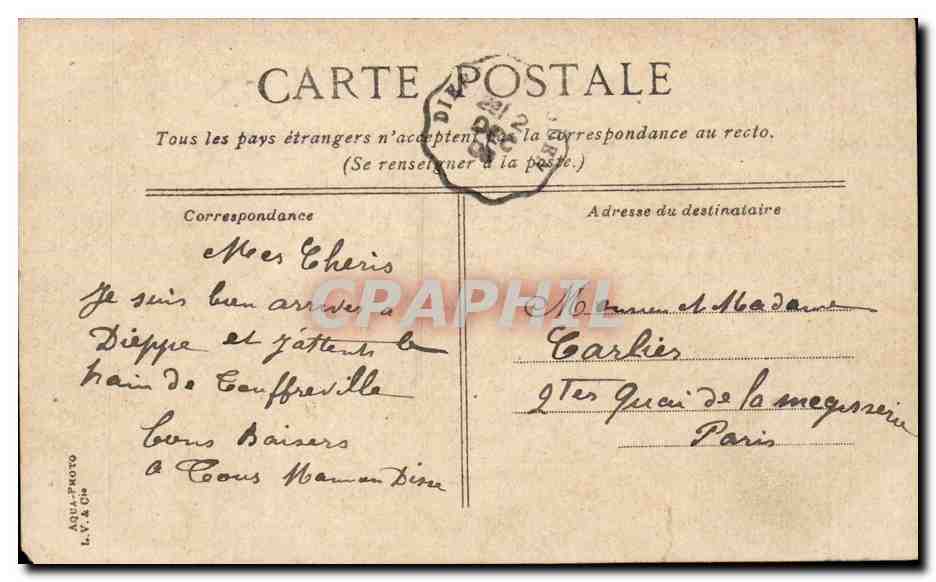 CARTE POSTALE
Tous les pays étrangers n'acceptent pas la correspondance au recto.
(Se renseigner à la poste.)
Correspondance
Mes Cheris
Je suis bien arrivée a
Dieppe et j'attends le
train de Touffreville
bons Baisers
a Tous Maman
Adresse du destinataire
Monsieur et Madame
Carlier
2 Ter Quai de la megisserie
Paris
AQUA-PHOTO
L. V. & Cie
CPAPHIL